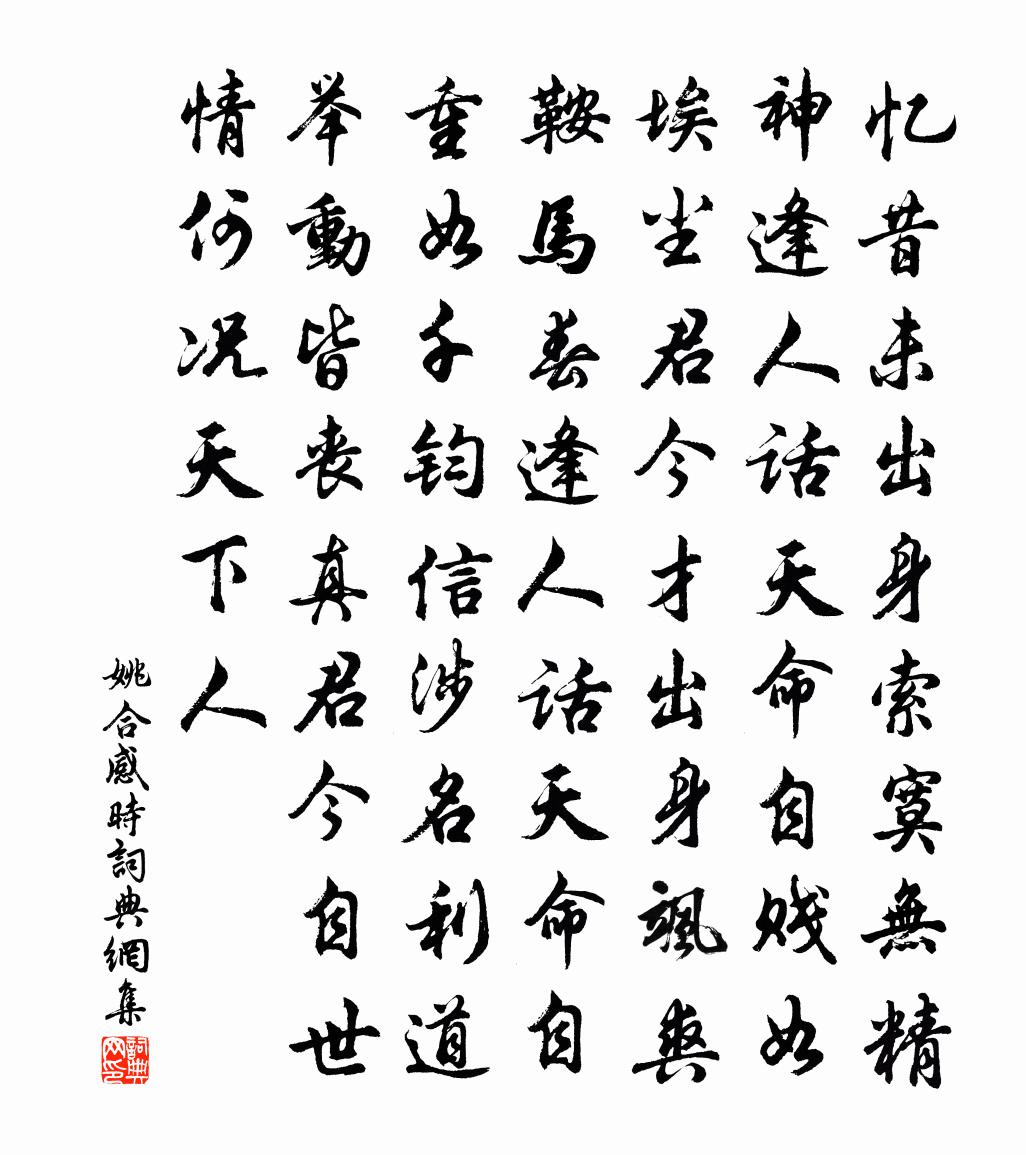 忆昔未出身索寞無精
神逢人話天命自贱如
埃尘君今才出身颯爽
鞍馬春逢人話天命自
重如千鈞信涉名利道
举動皆丧真君今自世
情何况天下人
姚合感時詞典網集
詞典网印